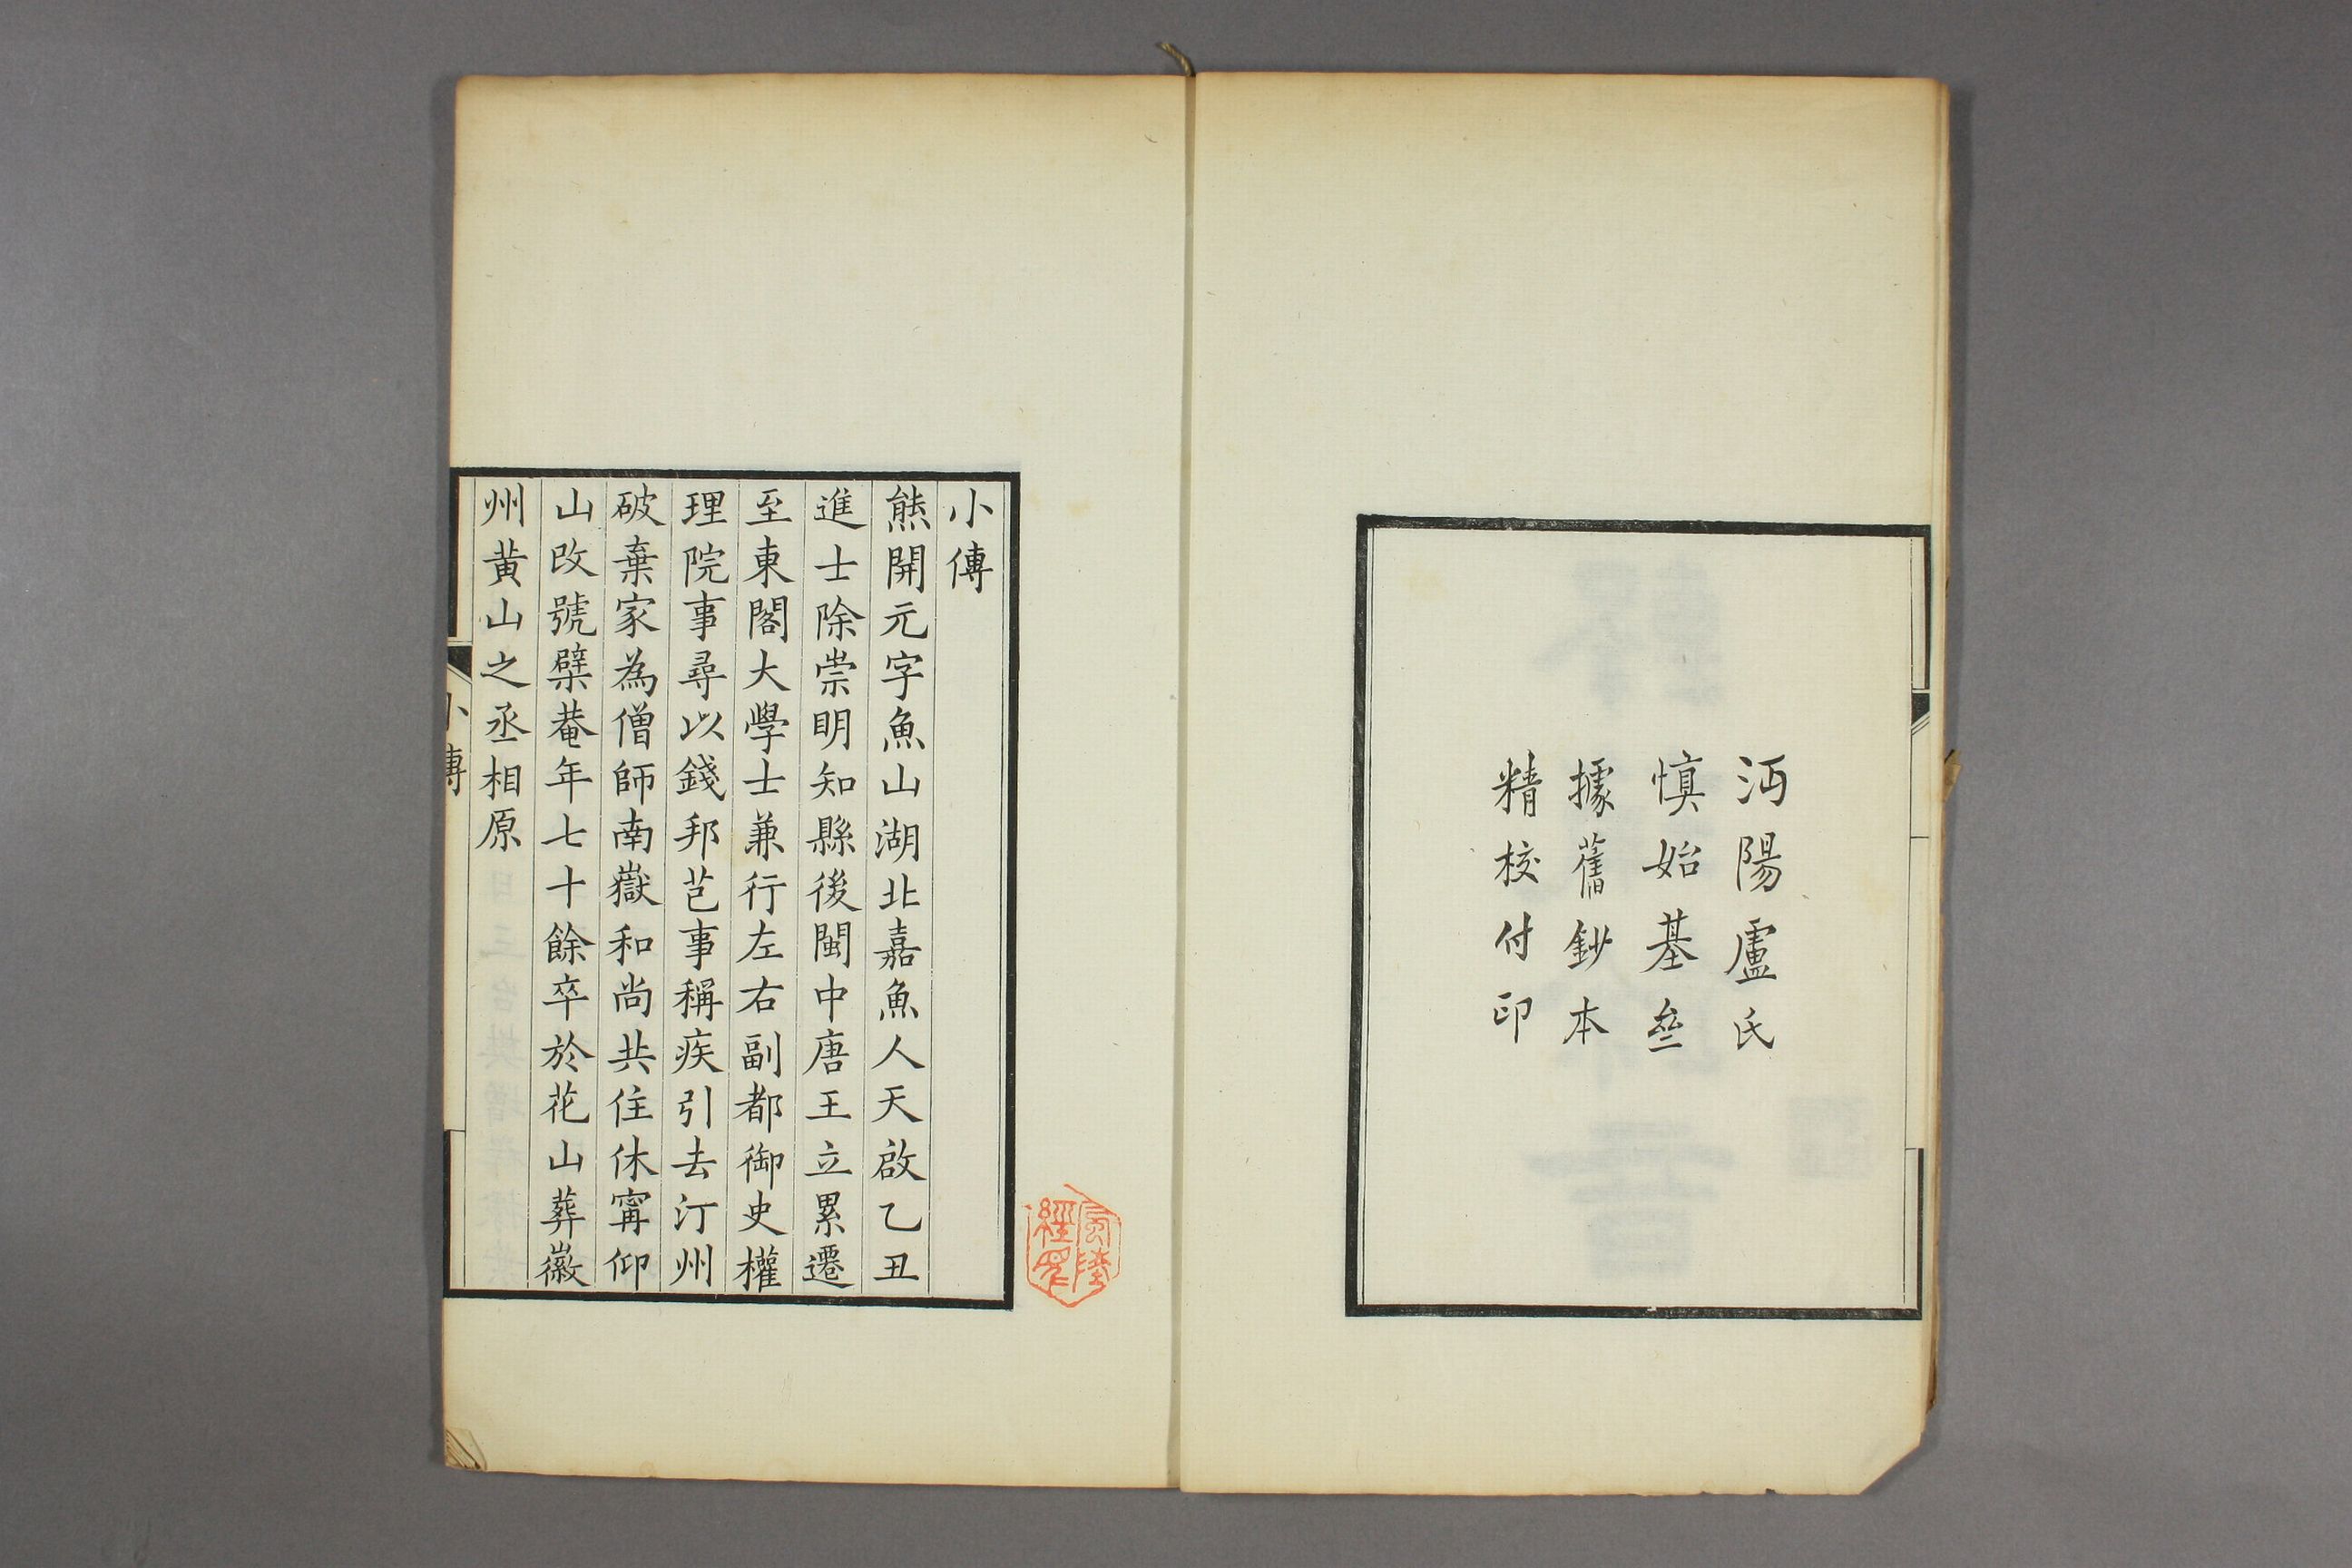 沔陽盧氏
慎始基叄
據舊鈔本
精校付印
小傳
熊開元字魚山湖北嘉魚人天啟乙丑
進士除崇明知縣後閩中唐王立累遷
至東閣大學士兼行左右副都御史權
理院事尋以錢邦芑事稱疾引去汀州
破棄家為僧師南嶽和尚共住休寗仰
山改號檗菴年七十餘卒於花山葬徽
州黃山之丞相原
小傳